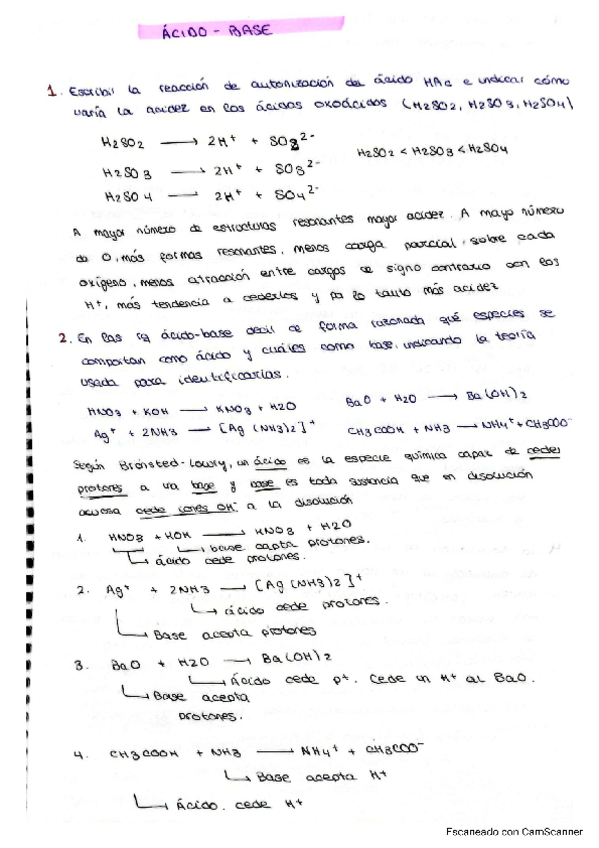 ÁCIDO - BASE
1. Escribir la reacción de autonización del ácido HAc e indicar cómo
varía la acidez en los ácidos oxoácidos (H2SO2, H2SO3, H2SO4)
H2SO2 → 2H+ + SO2 2-
H2SO3 → 2H+ + SO3 2-
H2SO4 — 2H+ + SO4 2-
H2SO2 < H2SO3 < H2SO4
A mayor número de estructuras resonantes mayor acidez. A mayo número
do O, más formas resonantes, menos carga parcial, sobre cada
oxígeno, menos atracción entre cargas de signo contrario con los
H+, más tendencia a cederlos y po lo tanto más acidez
2. En las rq ácido-base decil de forma razonada qué especies se
comportan como ácido y cuáles como base, indicando la teoría
usada para identificarlas.
HNO3 + KOH → KNO3 + H2O
BaO + H2O → Ba(OH)2
Ag+ + 2NH3 → [Ag (NH3)2]+
CH3COOH + NH3 → NH4+ + CH3COO-
Según Brönsted-Lowry, un ácido es la especie química capaz de ceder
protones a una base y base es toda sustancia que en disolución
acuosa cede iones OH- a la disolución
1. HNO3 + KOH → KNO3 + H2O
base capta protones.
ácido cede protones.
2. Ag+ + 2NH3 → [Ag (NH3)2]+
ácido cede protones.
Base acepta protones
3. BaO + H2O → Ba(OH)2
Ácido cede p+. Cede un H+ al BaO.
Base acepta
protones.
4. CH3COOH + NH3 → NH4+ + CH3COO-
Base acepta H+
Ácido. cede H+
Escaneado con CamScanner